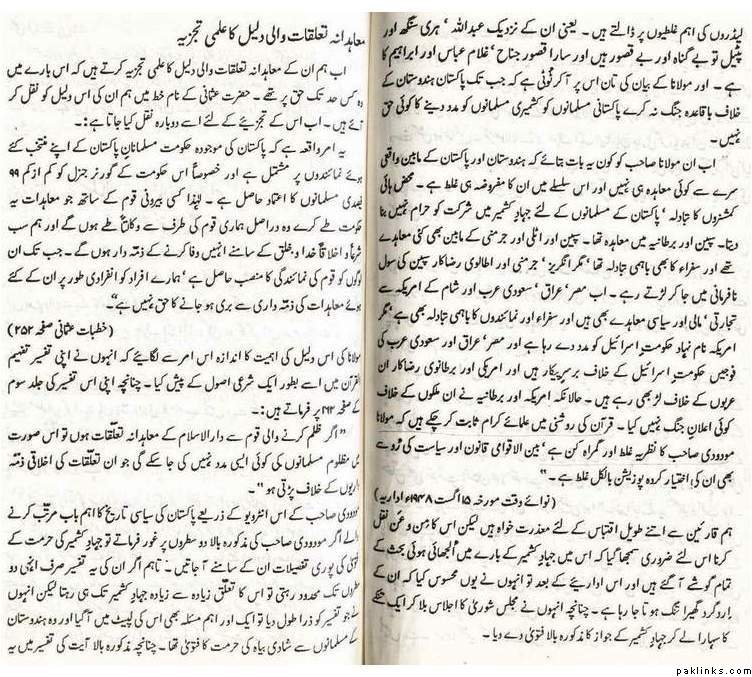 لیڈروں کی اہم غلطیوں پر ڈالتے ہیں ۔ یعنی ان کے نزدیک عبداللہ ' ہری سنگھ اور
پٹیل تو بے گناہ اور بے قصور ہیں اور سارا قصور جناح ' غلام عباس اور ابراہیم کا
ہے ۔ اور مولانا کے بیان کی تان اس پر آکر ٹوٹی ہے کہ جب تک پاکستان ہندوستان کے
خلاف باقاعدہ جنگ نہ کرے پاکستانی مسلمانوں کو کشمیری مسلمانوں کو مدد دینے کا کوئی حق
نہیں ۔
" اب ان مولانا صاحب کو کون یہ بات بتائے کہ ہندوستان اور پاکستان کے مابین واقعی
سرے سے کوئی معاہدہ ہی نہیں اور اس سلسلے میں ان کا مفروضہ ہی غلط ہے ۔ محض ہائی
کمشنروں کا تبادلہ ' پاکستان کے مسلمانوں کے لئے جہادِ کشمیر میں شرکت کو حرام نہیں بنا
دیتا ۔ سپین اور برطانیہ میں معاہدہ تھا ۔ سپین اور اٹلی اور جرمنی کے مابین بھی کئی معاہدے
تھے اور سفراء کا بھی باہمی تبادلہ تھا ' مگر انگریز ' جرمنی اور اطالوی رضاکار سپین کی سول
نافرمانی میں جا کر لڑتے رہے ۔ اب مصر ' عراق ' سعودی عرب اور شام کے امریکہ سے
تجارتی ' مالی اور سیاسی معاہدے بھی ہیں اور سفراء اور نمائندوں کا باہمی تبادلہ بھی ہے ' مگر
امریکہ نام نہاد حکومتِ اسرائیل کو مدد دے رہا ہے اور مصر ' عراق اور سعودی عرب کی
فوجیں حکومتِ اسرائیل کے خلاف برسرِ پیکار ہیں اور امریکی اور برطانوی رضاکار ان
عربوں کے خلاف لڑ بھی رہے ہیں ۔ حالانکہ امریکہ اور برطانیہ نے ان ملکوں کے خلاف
کوئی اعلانِ جنگ نہیں کیا ۔ قرآن کی روشنی میں علمائے کرام ثابت کر چکے ہیں کہ مولانا
مودودی صاحب کا نظریہ غلط اور گمراہ کن ہے ' بین الاقوامی قانون اور سیاست کی رُو سے
بھی ان کی اختیار کردہ پوزیشن بالکل غلط ہے ۔ "
(نوائے وقت مورخہ ۱۵ اگست ۱۹۴۸ء اداریہ)
ہم قارئین سے اتنے طویل اقتباس کے لئے معذرت خواہ ہیں لیکن اس کا مِن و عَن نقل
کرنا اس لئے ضروری سمجھا گیا کہ اس میں جہادِ کشمیر کے بارے میں اُلجھائی ہوئی بحث کے
تمام گوشے آ گئے ہیں اور اس اداریے کے بعد تو انہوں نے یوں محسوس کیا کہ ان کے
اردگرد گھیرا تنگ ہوتا جا رہا ہے ۔ چنانچہ انہوں نے مجلس شوریٰ کا اجلاس بلا کر ایک تنکے
کا سہارا لے کر جہادِ کشمیر کے جواز کا مذکورہ بالا فتویٰ دے دیا ۔
معاہدانہ تعلقات والی دلیل کا علمی تجزیہ
اب ہم ان کے معاہدانہ تعلقات والی دلیل کا علمی تجزیہ کرتے ہیں کہ اس بارے میں
وہ کس حد تک حق پر تھے ۔ حضرت عثمانی کے نام خط میں ہم ان کی اس دلیل کو نقل کر
آئے ہیں ۔ اب اس کے تجزیئے کے لئے اسے دوبارہ نقل کیا جاتا ہے :۔
یہ امر واقعہ ہے کہ پاکستان کی موجودہ حکومت مسلمانانِ پاکستان کے اپنے منتخب کئے
ہوئے نمائندوں پر مشتمل ہے اور خصوصاً اس حکومت کے گورنر جنرل کو کم از کم ۹۹
فیصدی مسلمانوں کا اعتماد حاصل ہے ۔ لہٰذا کسی بیرونی قوم کے ساتھ جو معاہدات یہ
حکومت طے کرے وہ دراصل ہماری قوم کی طرف سے وکالتاً طے ہوں گے اور ہم سب
شرعاً و اخلاقاً خدا و خلق کے سامنے انہیں وفا کرنے کے ذمہ دار ہوں گے ۔ جب تک ان
لوگوں کو قوم کی نمائندگی کا منصب حاصل ہے ' ہمارے افراد کو انفرادی طور پر ان کے کئے
ہوئے معاہدات کی ذمہ داری سے بری ہو جانے کا حق نہیں ہے" ۔
(خطبات عثمانی صفحہ ۲۵۲)
مولانا کی اس دلیل کی اہمیت کا اندازہ اس امر سے لگائیے کہ انہوں نے اپنی تفسیر تفہیم
القرآن میں اسے بطور ایک شرعی اصول کے پیش کیا ۔ چنانچہ اپنی اس تفسیر کی جلد سوم
کے صفحہ پر فرماتے ہیں :۔
"اگر ظلم کرنے والی قوم سے دار الاسلام کے معاہدانہ تعلّقات ہوں تو اس صورت
میں مظلوم مسلمانوں کی کوئی ایسی مدد نہیں کی جا سکے گی جو ان تعلّقات کی اخلاقی ذمہ
داریوں کے خلاف پڑتی ہو"
مودودی صاحب کے اس انٹرویو کے ذریعے پاکستان کی سیاسی تاریخ کا اہم باب مرتب کرنے
والے اگر مودودی صاحب کی مذکورہ بالا دو سطروں پر غور فرماتے تو جہادِ کشمیر کی حرمت کے
فتویٰ کی پوری تفصیلات ان کے سامنے آ جاتیں ۔ تاہم اگر ان کی یہ تفسیر صرف انہی دو
سطروں تک محدود رہتی تو اس کا تعلّق زیادہ سے زیادہ جہادِ کشمیر تک ہی رہتا لیکن انہوں
نے جو تفسیر کو ذرا طول دیا تو ایک اور اہم مسئلہ بھی اس کی لپیٹ میں آ گیا اور وہ ہندوستان
کے مسلمانوں سے شادی بیاہ کی حرمت کا فتویٰ تھا ۔ چنانچہ مذکورہ بالا آیت کی تفسیر میں یہ
paklinks.com